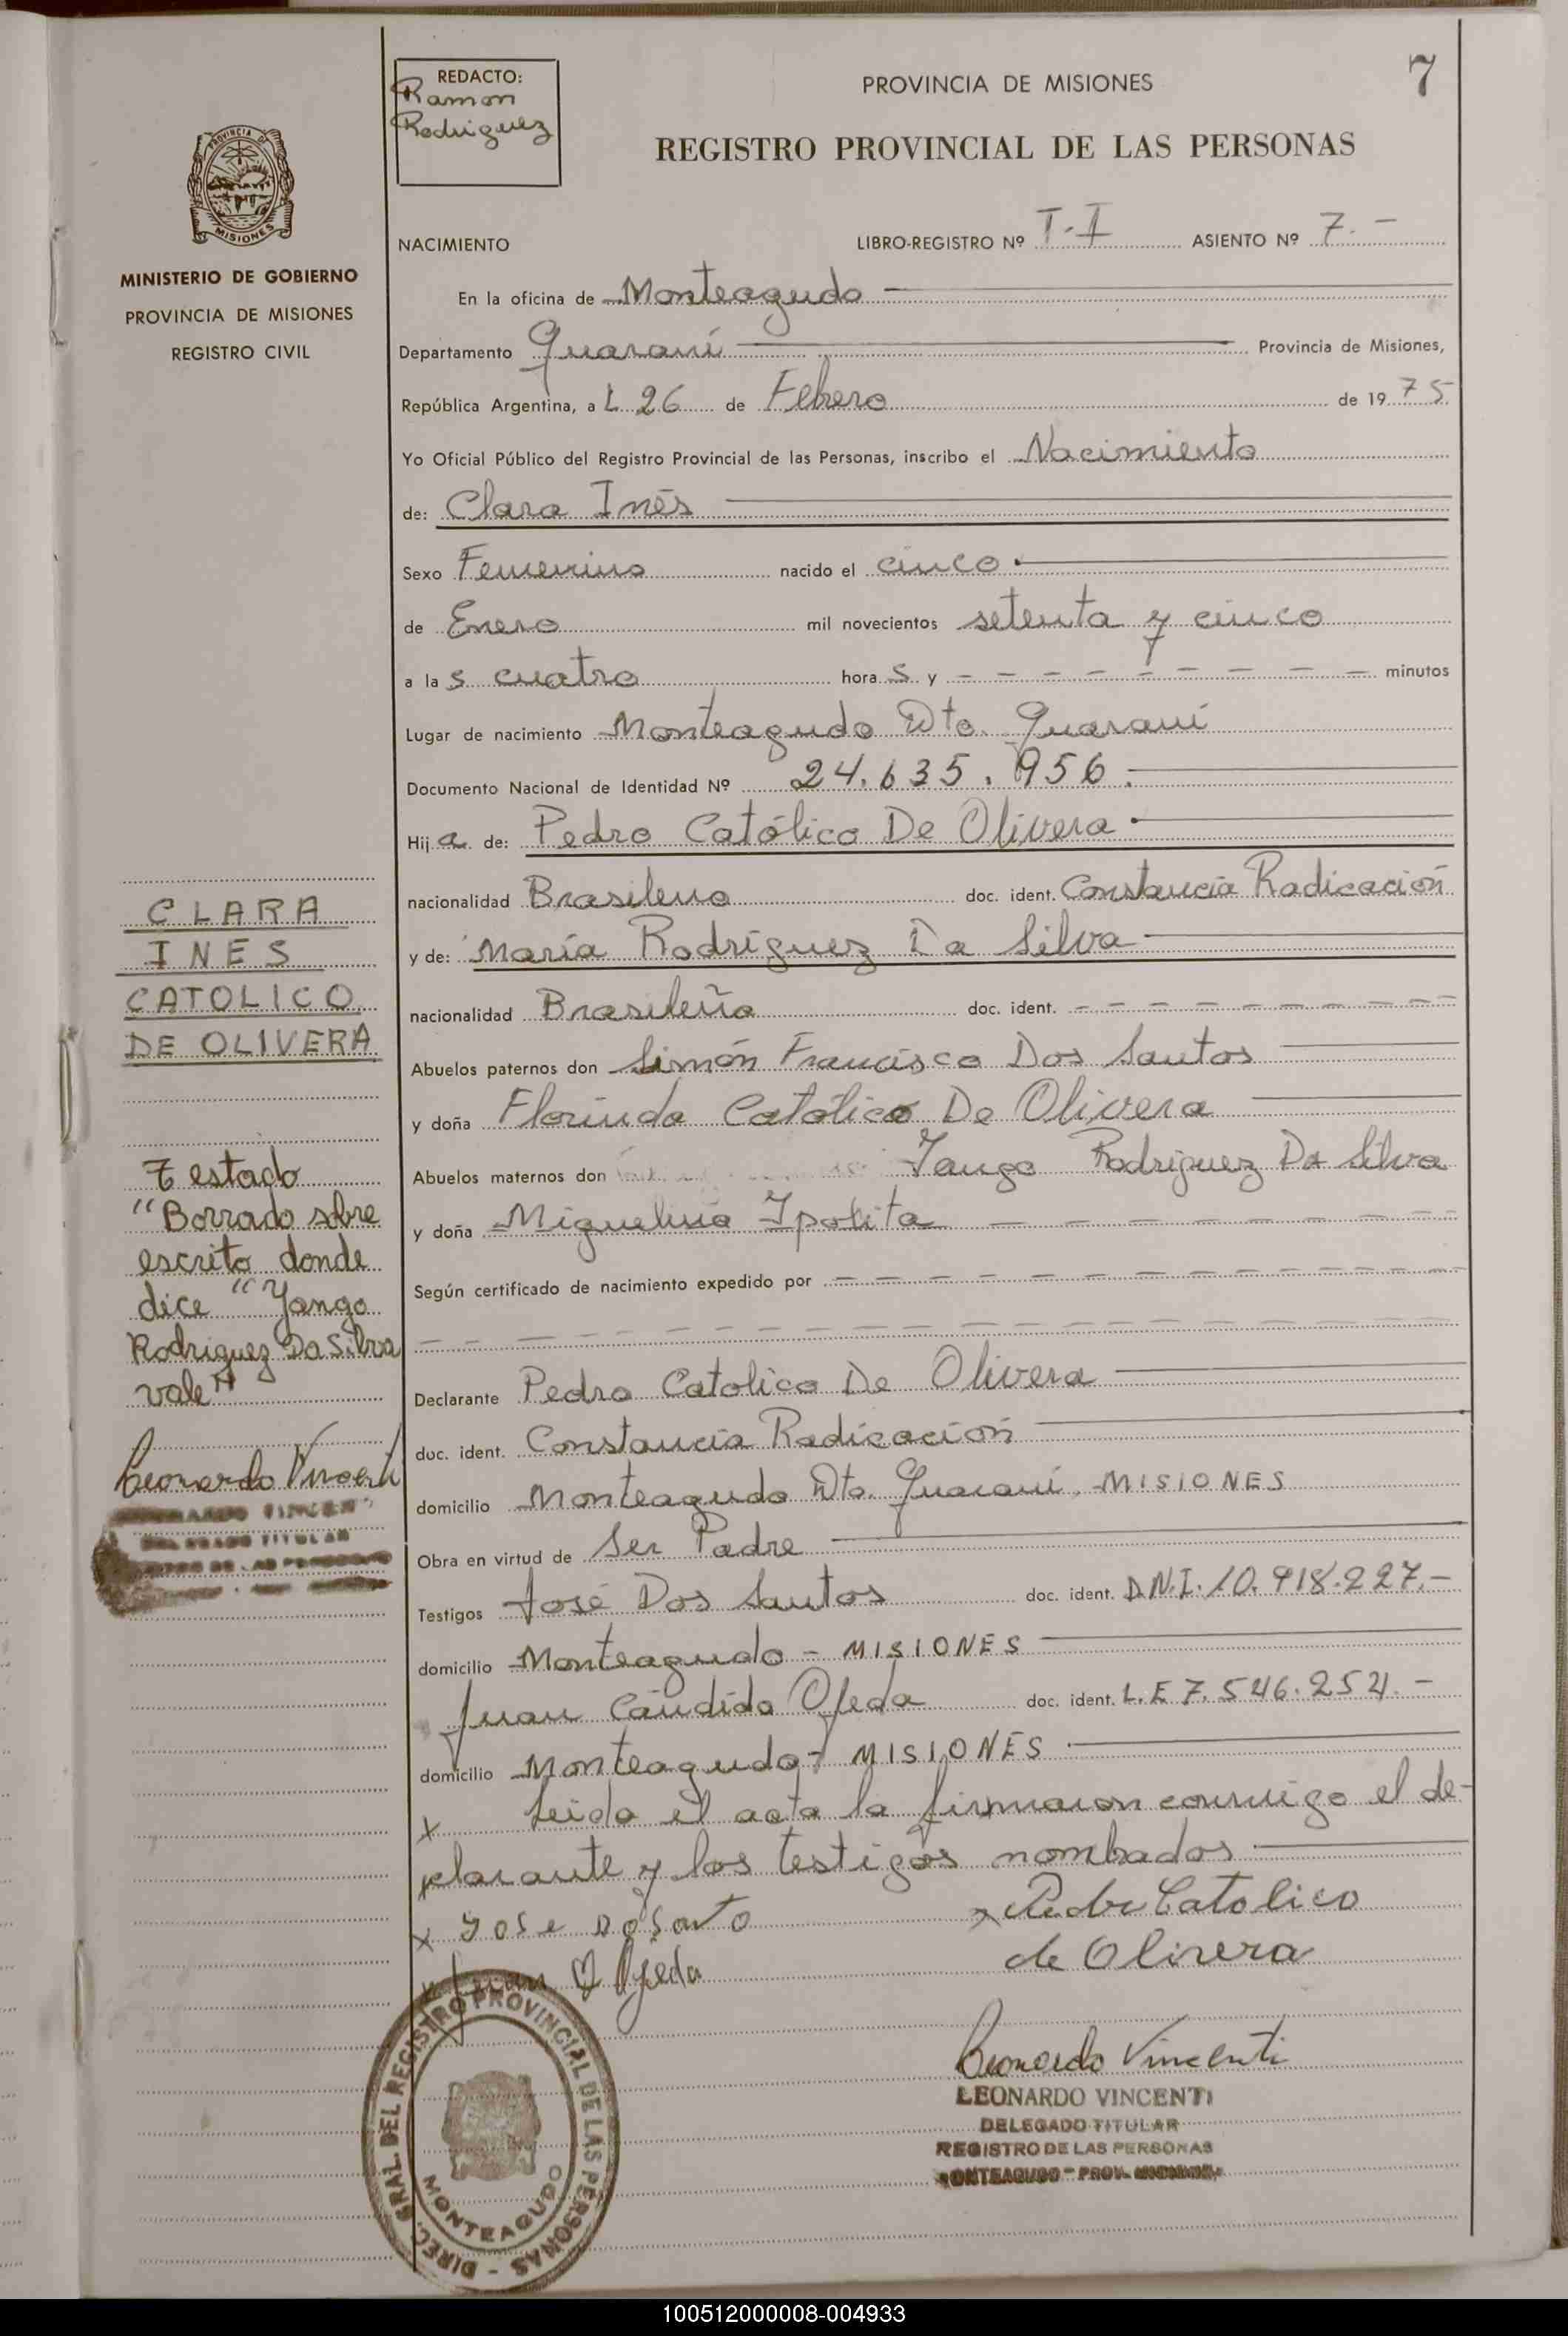 7
REDACTO:
Ramon
Rodriguez
PROVINCIA DE MISIONES
REGISTRO PROVINCIAL DE LAS PERSONAS
PROVINCIA DE
MISIONES
MINISTERIO DE GOBIERNO
PROVINCIA DE MISIONES
REGISTRO CIVIL
NACIMIENTO LIBRO-REGISTRO Nº T-I ASIENTO Nº 7.-
En la oficina de Monteagudo
Departamento Guaraní Provincia de Misiones,
República Argentina, a L 26 de Febrero de 1975
Yo Oficial Público del Registro Provincial de las Personas, inscribo el Nacimiento
de: Clara Inés
Sexo Femenino nacido el cinco
de Enero mil novecientos setenta y cinco
a las cuatro horas y - - - - - - - - - minutos
Lugar de nacimiento Monteagudo Dto. Guaraní
Documento Nacional de Identidad Nº 24.635.956.
Hija de: Pedro Católico De Olivera
nacionalidad Brasileno doc. ident. Constancia Radicación
y de: María Rodríguez Da Silva
nacionalidad Brasileña doc. ident. - - - - - - - - -
Abuelos paternos don Simón Francisco Dos Santos
y doña Florinda Católico De Olivera
Abuelos maternos don Yango Rodriguez Da Silva
y doña Miguelina Ipolita - - - - - - - -
Según certificado de nacimiento expedido por - - - - - - - - - - - - -
Declarante Pedro Catolico De Olivera
doc. ident. Constancia Radicación
domicilio Monteagudo Dto. Guaraní, MISIONES
Obra en virtud de Ser Padre
Testigos José Dos Santos doc. ident. D.N.I. 10.918.227.-
domicilio Monteagudo - MISIONES
Juan Cándido Ojeda doc. ident. L.E 7.546.254.-
domicilio Monteagudo - MISIONES
x Leida el acta la firmaron conmigo el de-
clarante y los testigos nombrados
x Jose Dosanto x Pedro Catolico
de Olivera
x Juan C Ojeda
CLARA
INES
CATOLICO
DE OLIVERA
Testado
"Borrado sobre
escrito donde
dice "Yango
Rodriguez Da Silva
vale"
Leonardo Vincenti
DELEGADO TITULAR
Leonardo Vincenti
LEONARDO VINCENTI
DELEGADO TITULAR
REGISTRO DE LAS PERSONAS
MONTEAGUDO - PROV. MISIONES
DIREC. GRAL. DEL REGISTRO PROVINCIAL DE LAS PERSONAS -
MONTEAGUDO
100512000008-004933